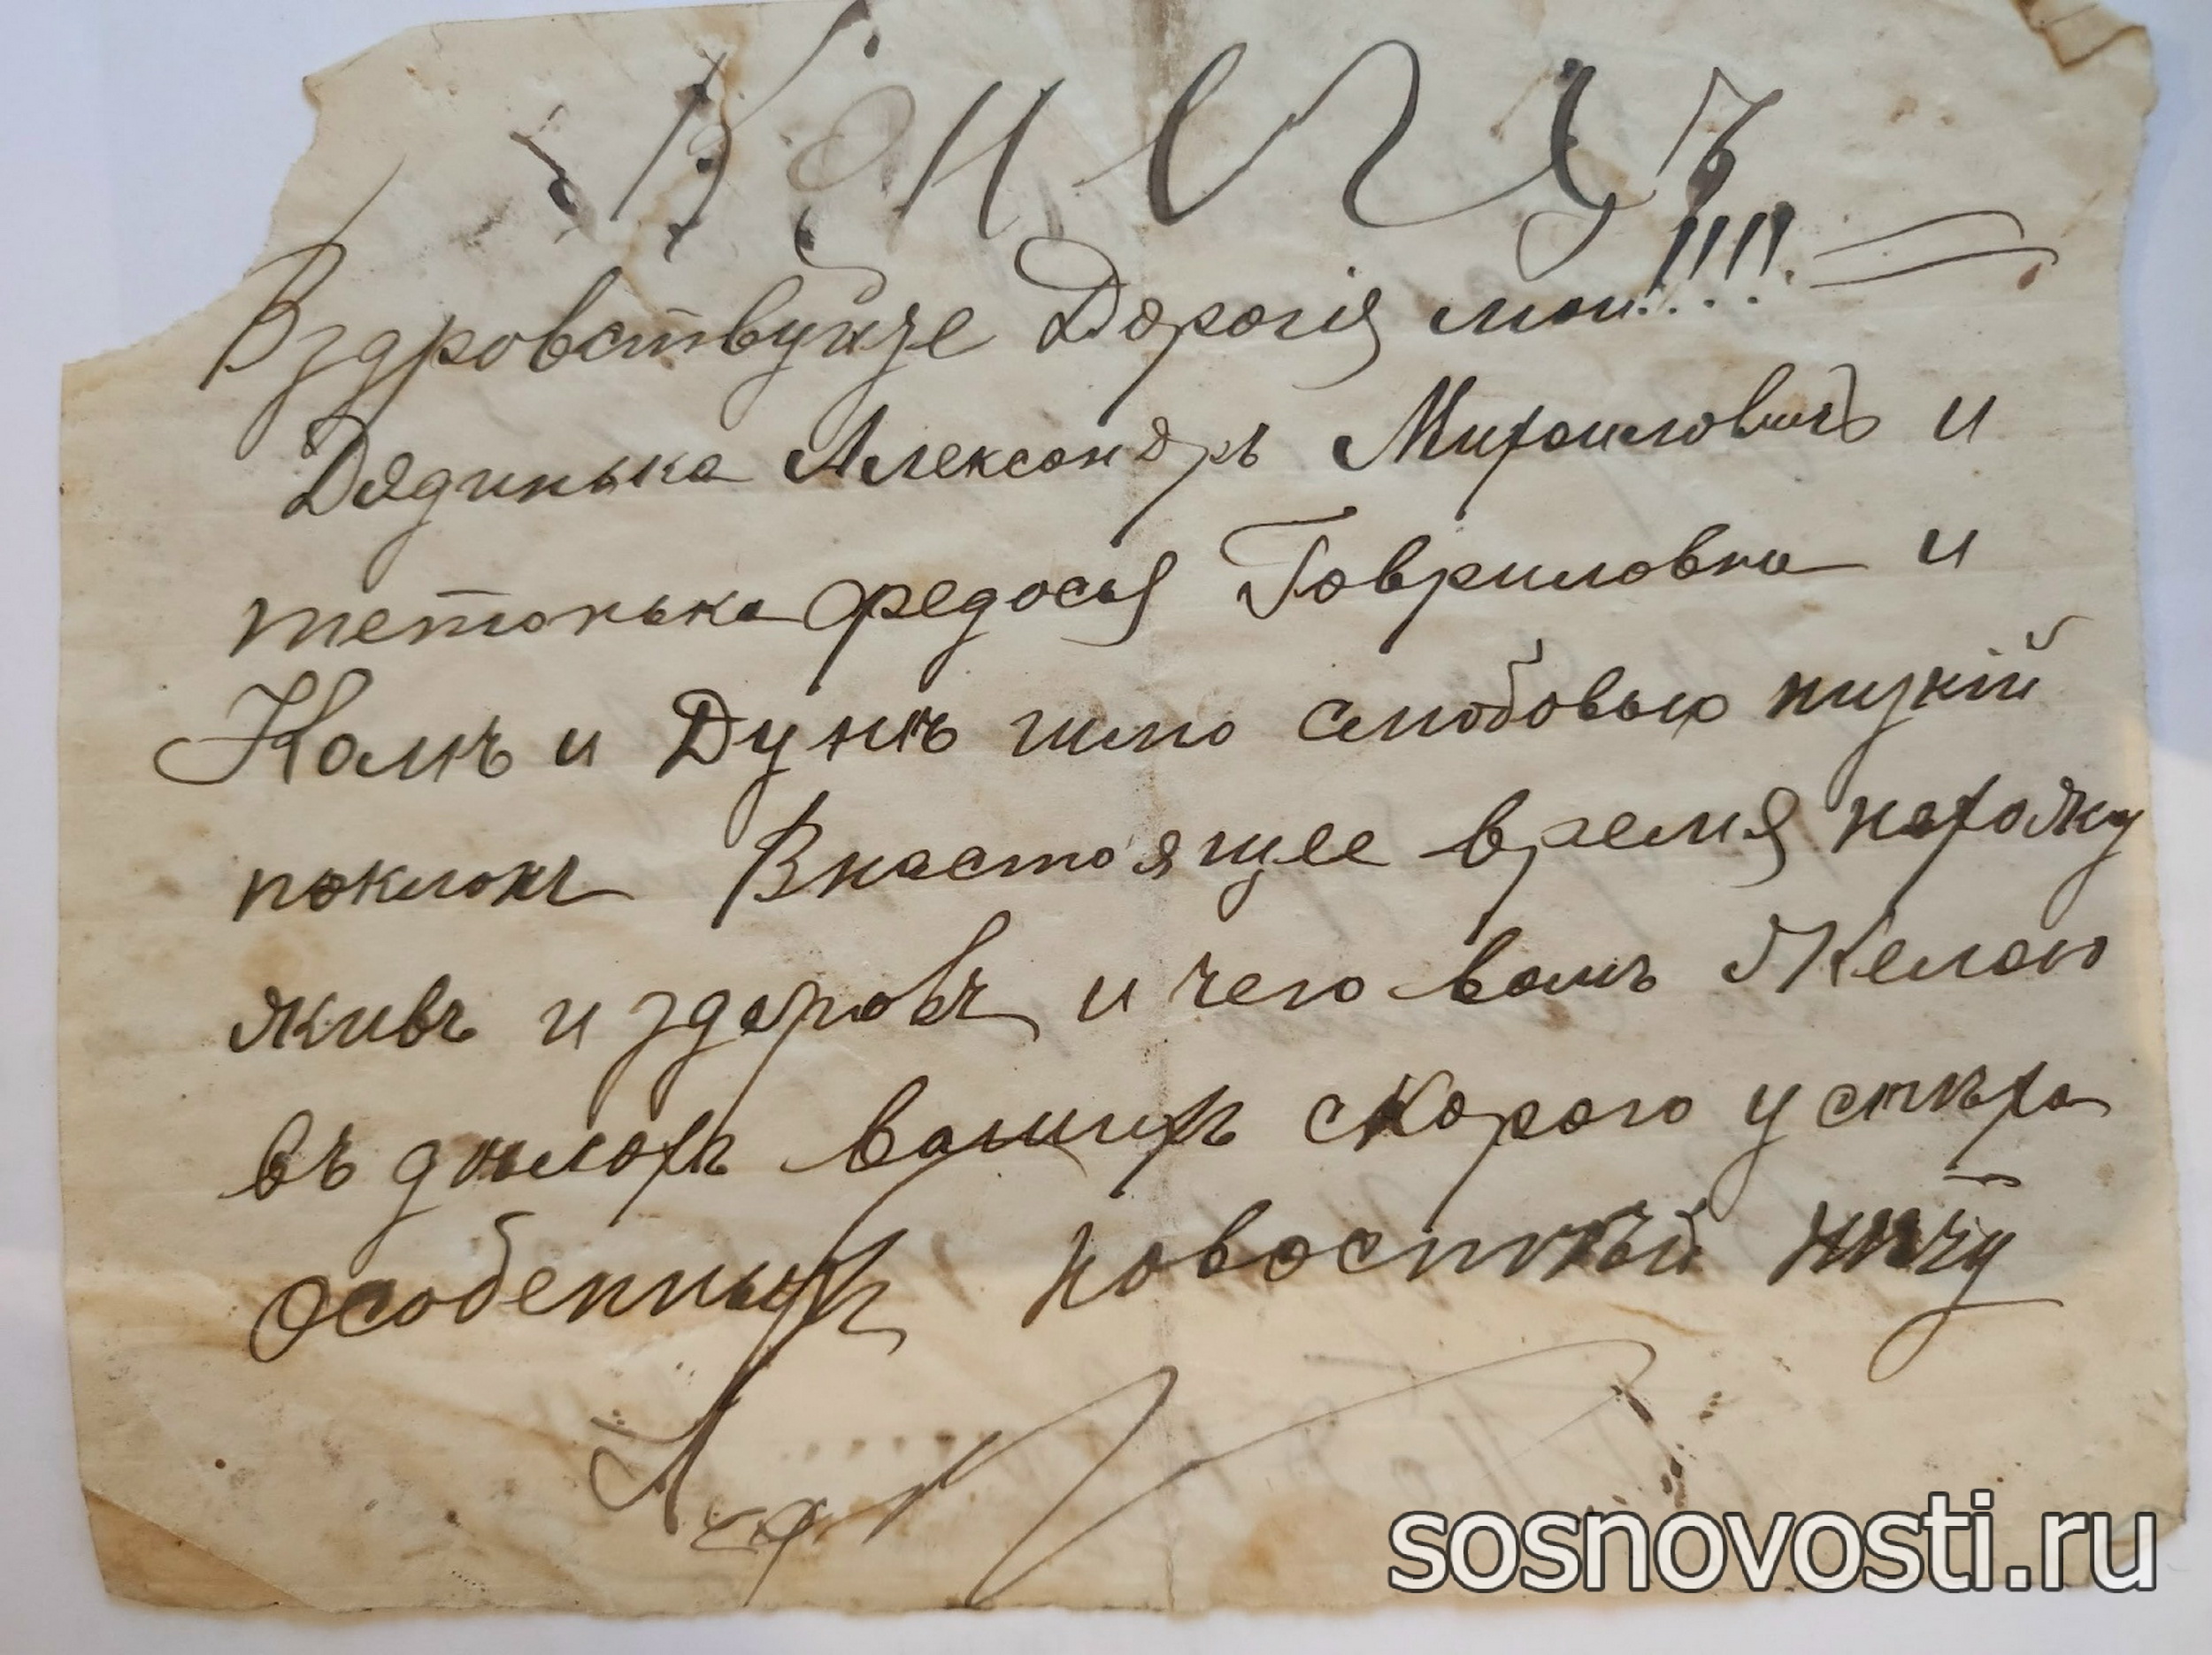 Конецъ
!!!!
Вздровствуйте Дорогія мои!
Дядинька Александръ Михаиловичъ и
тетонька федосья Гавриловна и
Колѣ и Дунѣ шлю слюбовью низкій
поклонъ Внастоящее время нахожу
живъ и здоровъ и чего вамъ Желаю
въ дѣлахъ вашихъ скорого успѣха
особенныхъ новостѣй нѣту
sosnovosti.ru